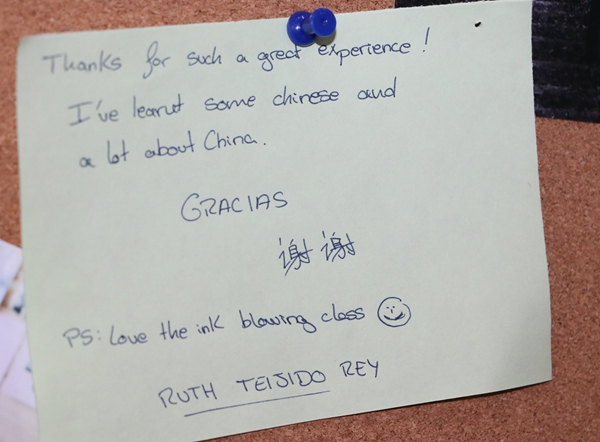 Thanks for such a great experience!
I've learnt some chinese and
a lot about China.
GRACIAS
谢谢
PS: Love the ink blowing class
RUTH TEIJIDO REY